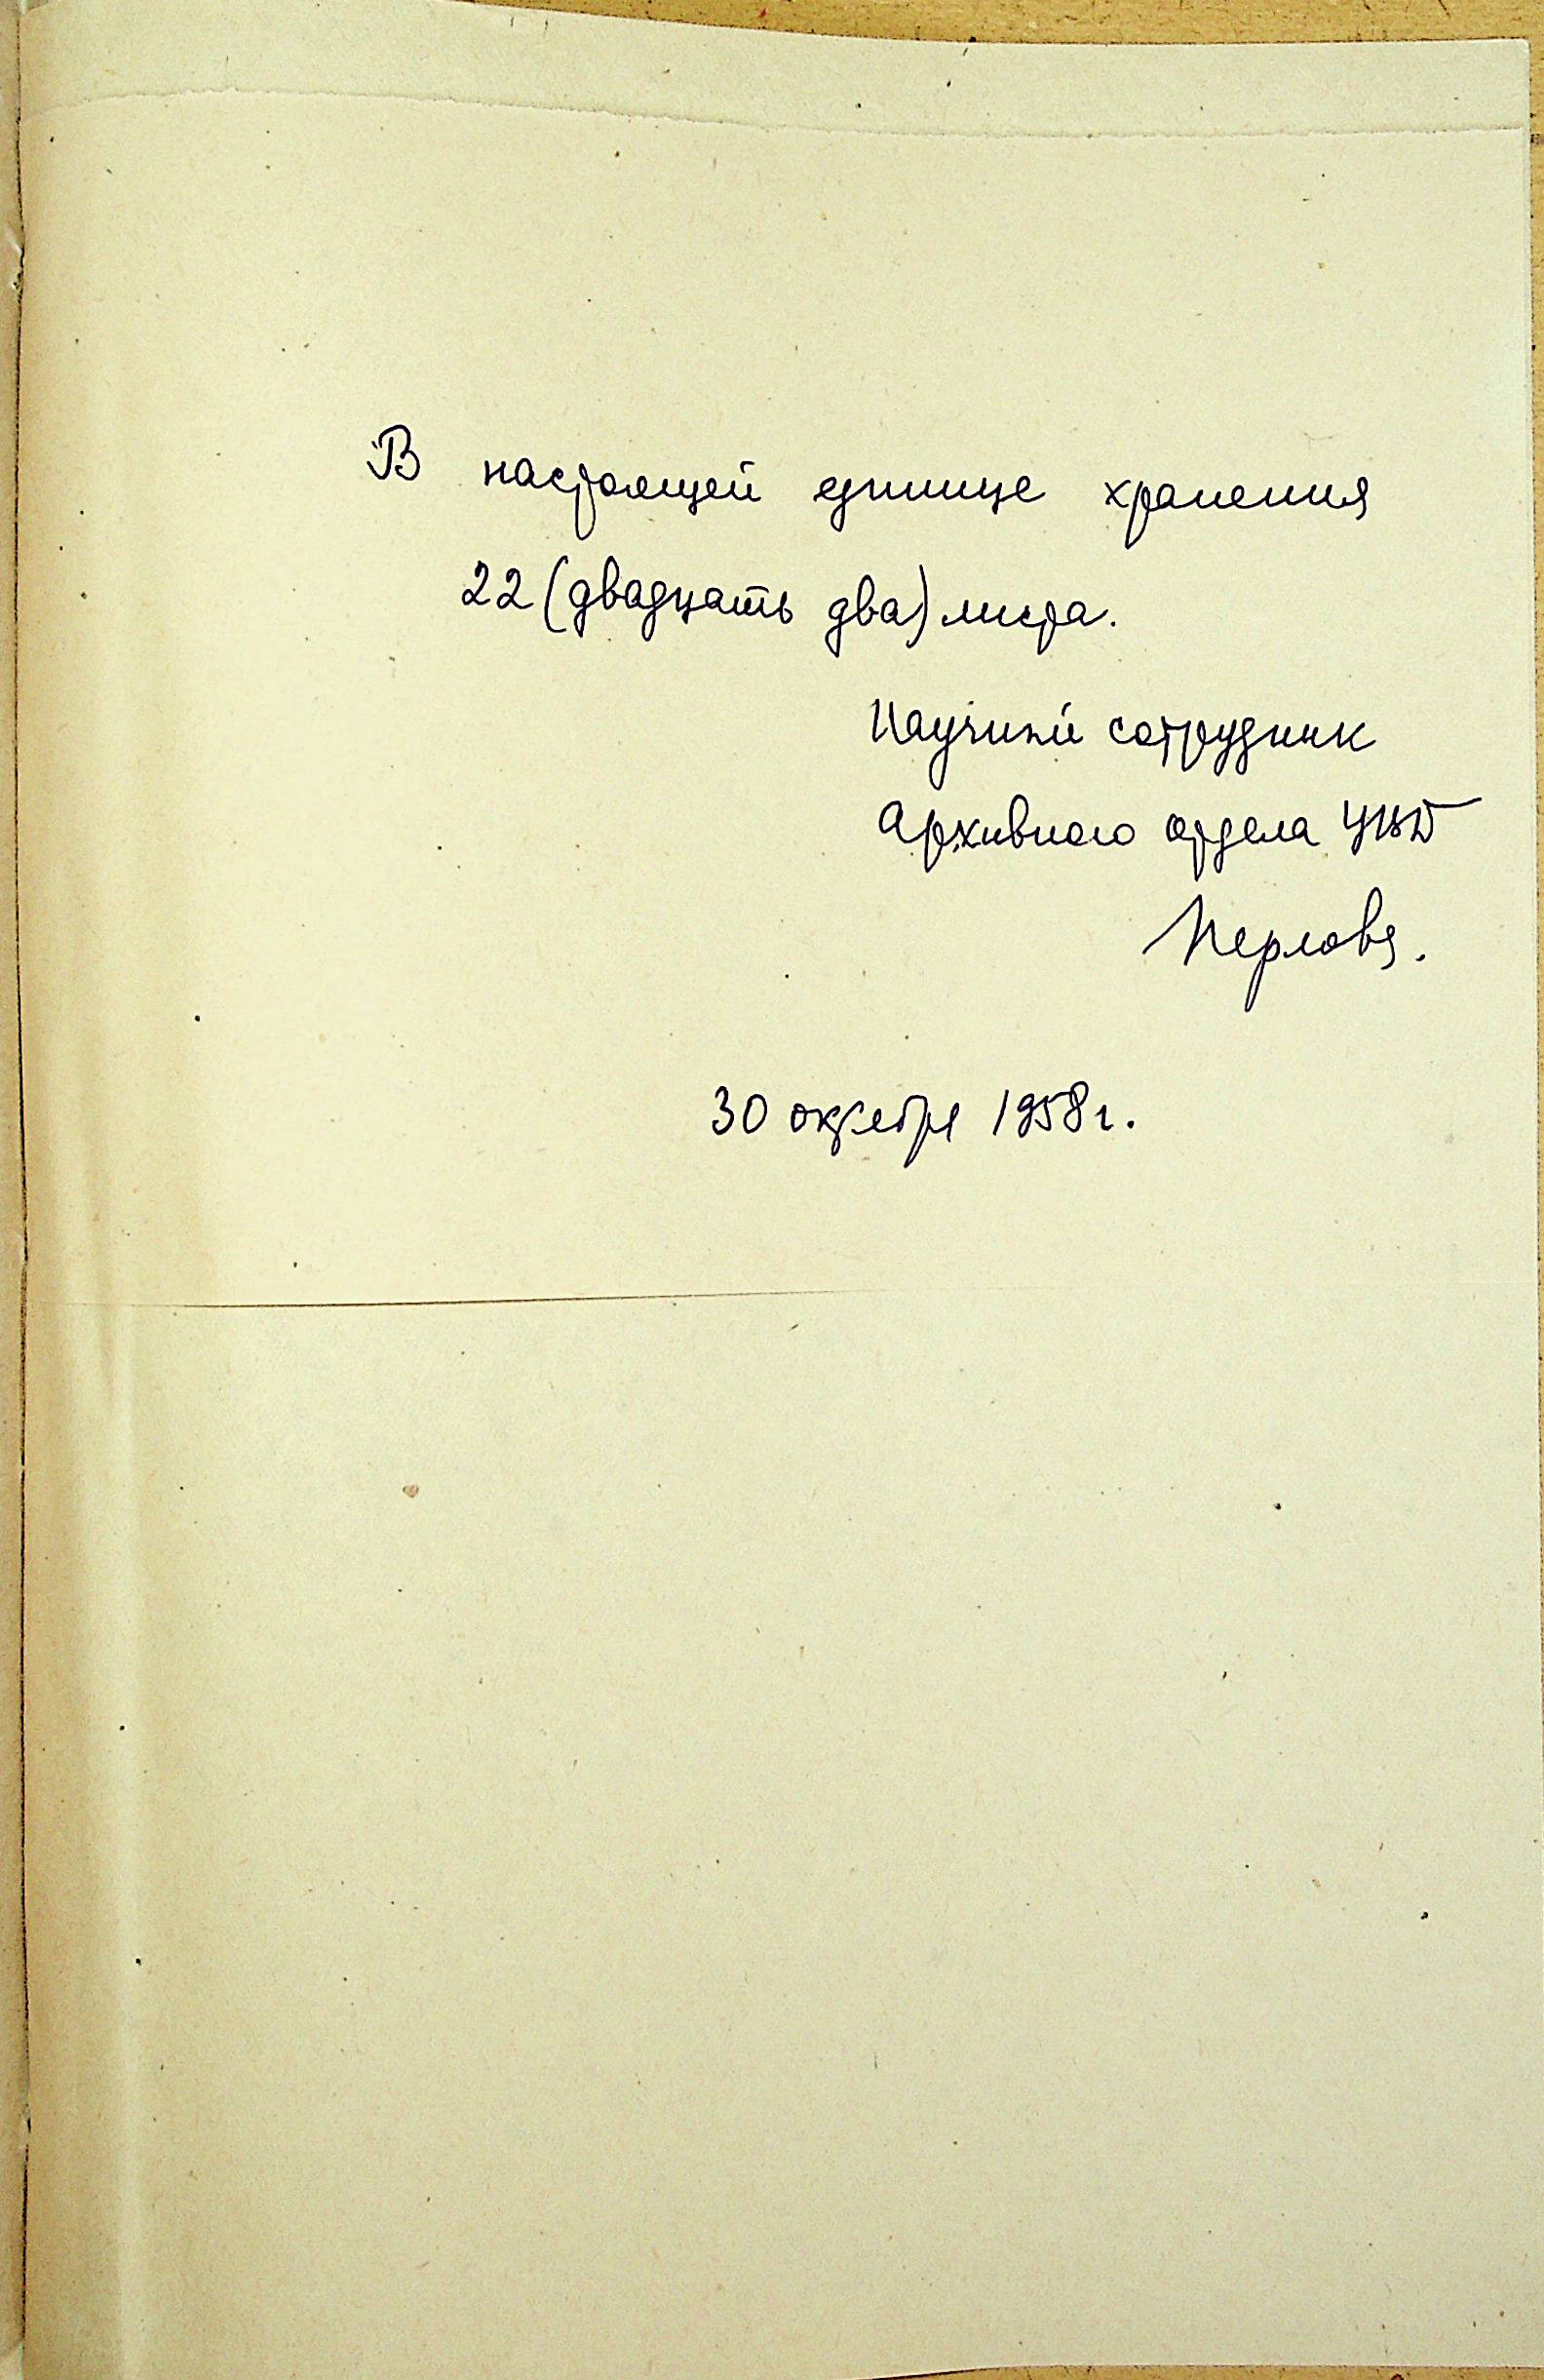 В настоящей единице хранения
22 (двадцать два) листа.
Научный сотрудник
Архивного отдела УВД
Перлова.
30 октября 1958 г.